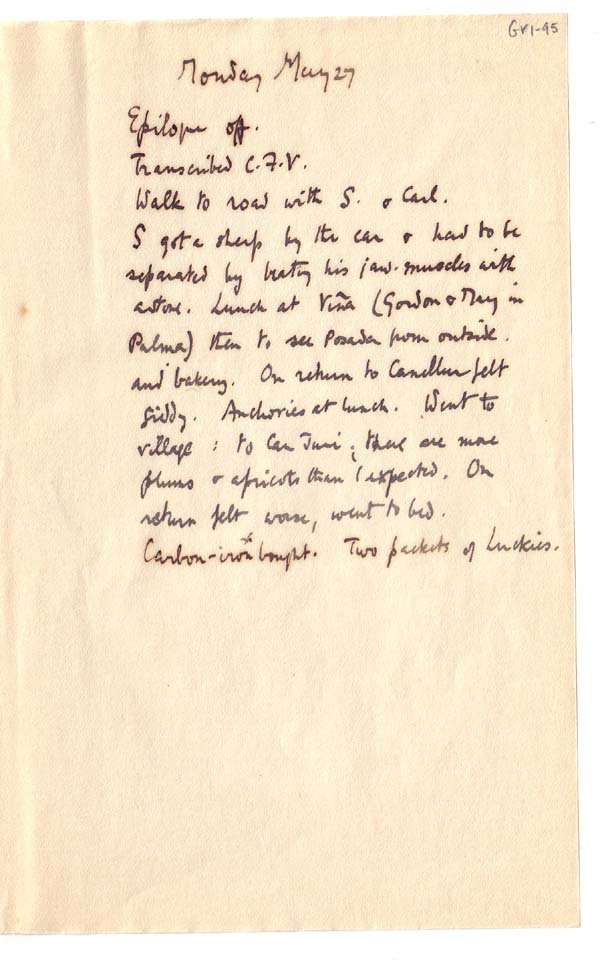 GV1-95
Monday May 27
Epilogue off.
Transcribed C.F.V.
Walk to road with S. & Carl.
S got a sheep by the ear & had to be
separated by beating his jaw-muscles with
a stone. Lunch at Viña (Gordon & Mary in
Palma) then to see Posada from outside.
and bakery. On return to Canellun felt
giddy. Anchovies at lunch. Went to
village: to Can Juni; there are more
plums & apricots than I expected. On
return felt worse, went to bed.
Carbon-iron bought. Two packets of Luckies.